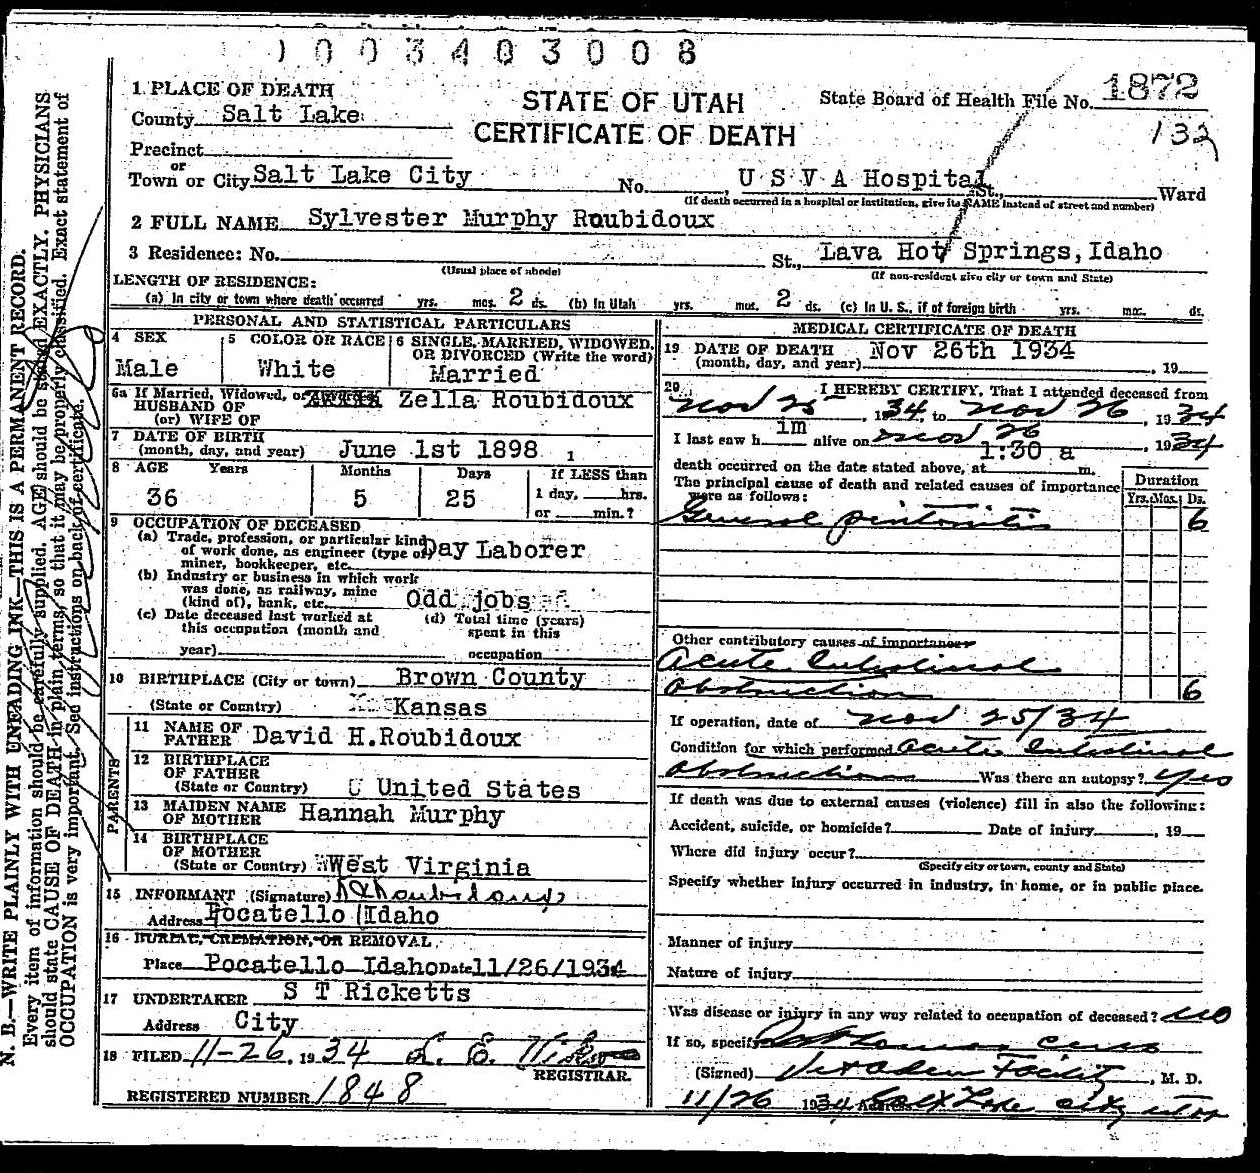 1003403008
1 PLACE OF DEATH
County Salt Lake
Precinct
or
Town or City Salt Lake City
STATE OF UTAH
CERTIFICATE OF DEATH
State Board of Health File No. 1872
132
No. U S V A Hospital St., Ward
(If death occurred in a hospital or institution, give its NAME instead of street and number)
2 FULL NAME Sylvester Murphy Roubidoux
3 Residence: No. St., Lava Hot Springs, Idaho
(Usual place of abode) (If non-resident give city or town and State)
LENGTH OF RESIDENCE:
(a) In city or town where death occurred yrs. mos. 2 ds. (b) In Utah yrs. mos. 2 ds. (c) In U. S., if of foreign birth yrs. mos. ds.
PERSONAL AND STATISTICAL PARTICULARS
4 SEX
Male
5 COLOR OR RACE
White
6 SINGLE, MARRIED, WIDOWED, OR DIVORCED (Write the word)
Married
6a If Married, Widowed, or Zella Roubidoux
HUSBAND OF
(or) WIFE OF
7 DATE OF BIRTH
(month, day, and year) June 1st 1898 1
8 AGE Years Months Days If LESS than
36 5 25 1 day, hrs.
or min.?
9 OCCUPATION OF DECEASED
(a) Trade, profession, or particular kind
of work done, as engineer (type of) Day Laborer
miner, bookkeeper, etc.
(b) Industry or business in which work
was done, as railway, mine
(kind of), bank, etc. Odd jobs
(c) Date deceased last worked at
this occupation (month and
year)
(d) Total time (years)
spent in this
occupation
10 BIRTHPLACE (City or town) Brown County
(State or Country) Kansas
PARENTS
11 NAME OF
FATHER David H.Roubidoux
12 BIRTHPLACE
OF FATHER
(State or Country) U United States
13 MAIDEN NAME
OF MOTHER Hannah Murphy
14 BIRTHPLACE
OF MOTHER
(State or Country) West Virginia
15 INFORMANT (Signature)
Address Pocatello Idaho
16 BURIAL, CREMATION, OR REMOVAL
Place Pocatello Idaho Date 11/26/1934
17 UNDERTAKER S T Ricketts
Address City
18 FILED 11-26, 1934
REGISTRAR.
REGISTERED NUMBER 1848
MEDICAL CERTIFICATE OF DEATH
19 DATE OF DEATH Nov 26th 1934
(month, day, and year) , 19
20 I HEREBY CERTIFY, That I attended deceased from
Nov 25 1934, to Nov 26, 1934
I last saw him alive on Nov 26, 1934
death occurred on the date stated above, at 1:30 a m.
The principal cause of death and related causes of importance
were as follows:
Duration
Yrs. Mos. Ds.
General peritonitis 6
Other contributory causes of importance:
Acute Intestinal
Obstruction 6
If operation, date of Nov 25/34
Condition for which performed Acute Intestinal
Obstruction Was there an autopsy? Yes
If death was due to external causes (violence) fill in also the following:
Accident, suicide, or homicide? Date of injury , 19
Where did injury occur?
(Specify city or town, county and State)
Specify whether injury occurred in industry, in home, or in public place.
Manner of injury
Nature of injury
Was disease or injury in any way related to occupation of deceased? No
If so, specify
(Signed) Facility, M. D.
11/26 1934 Address Salt Lake City Utah
N. B.—WRITE PLAINLY WITH UNFADING INK—THIS IS A PERMANENT RECORD.
Every item of information should be carefully supplied. AGE should be stated EXACTLY. PHYSICIANS
should state CAUSE OF DEATH in plain terms, so that it may be properly classified. Exact statement of
OCCUPATION is very important. See instructions on back of certificate.